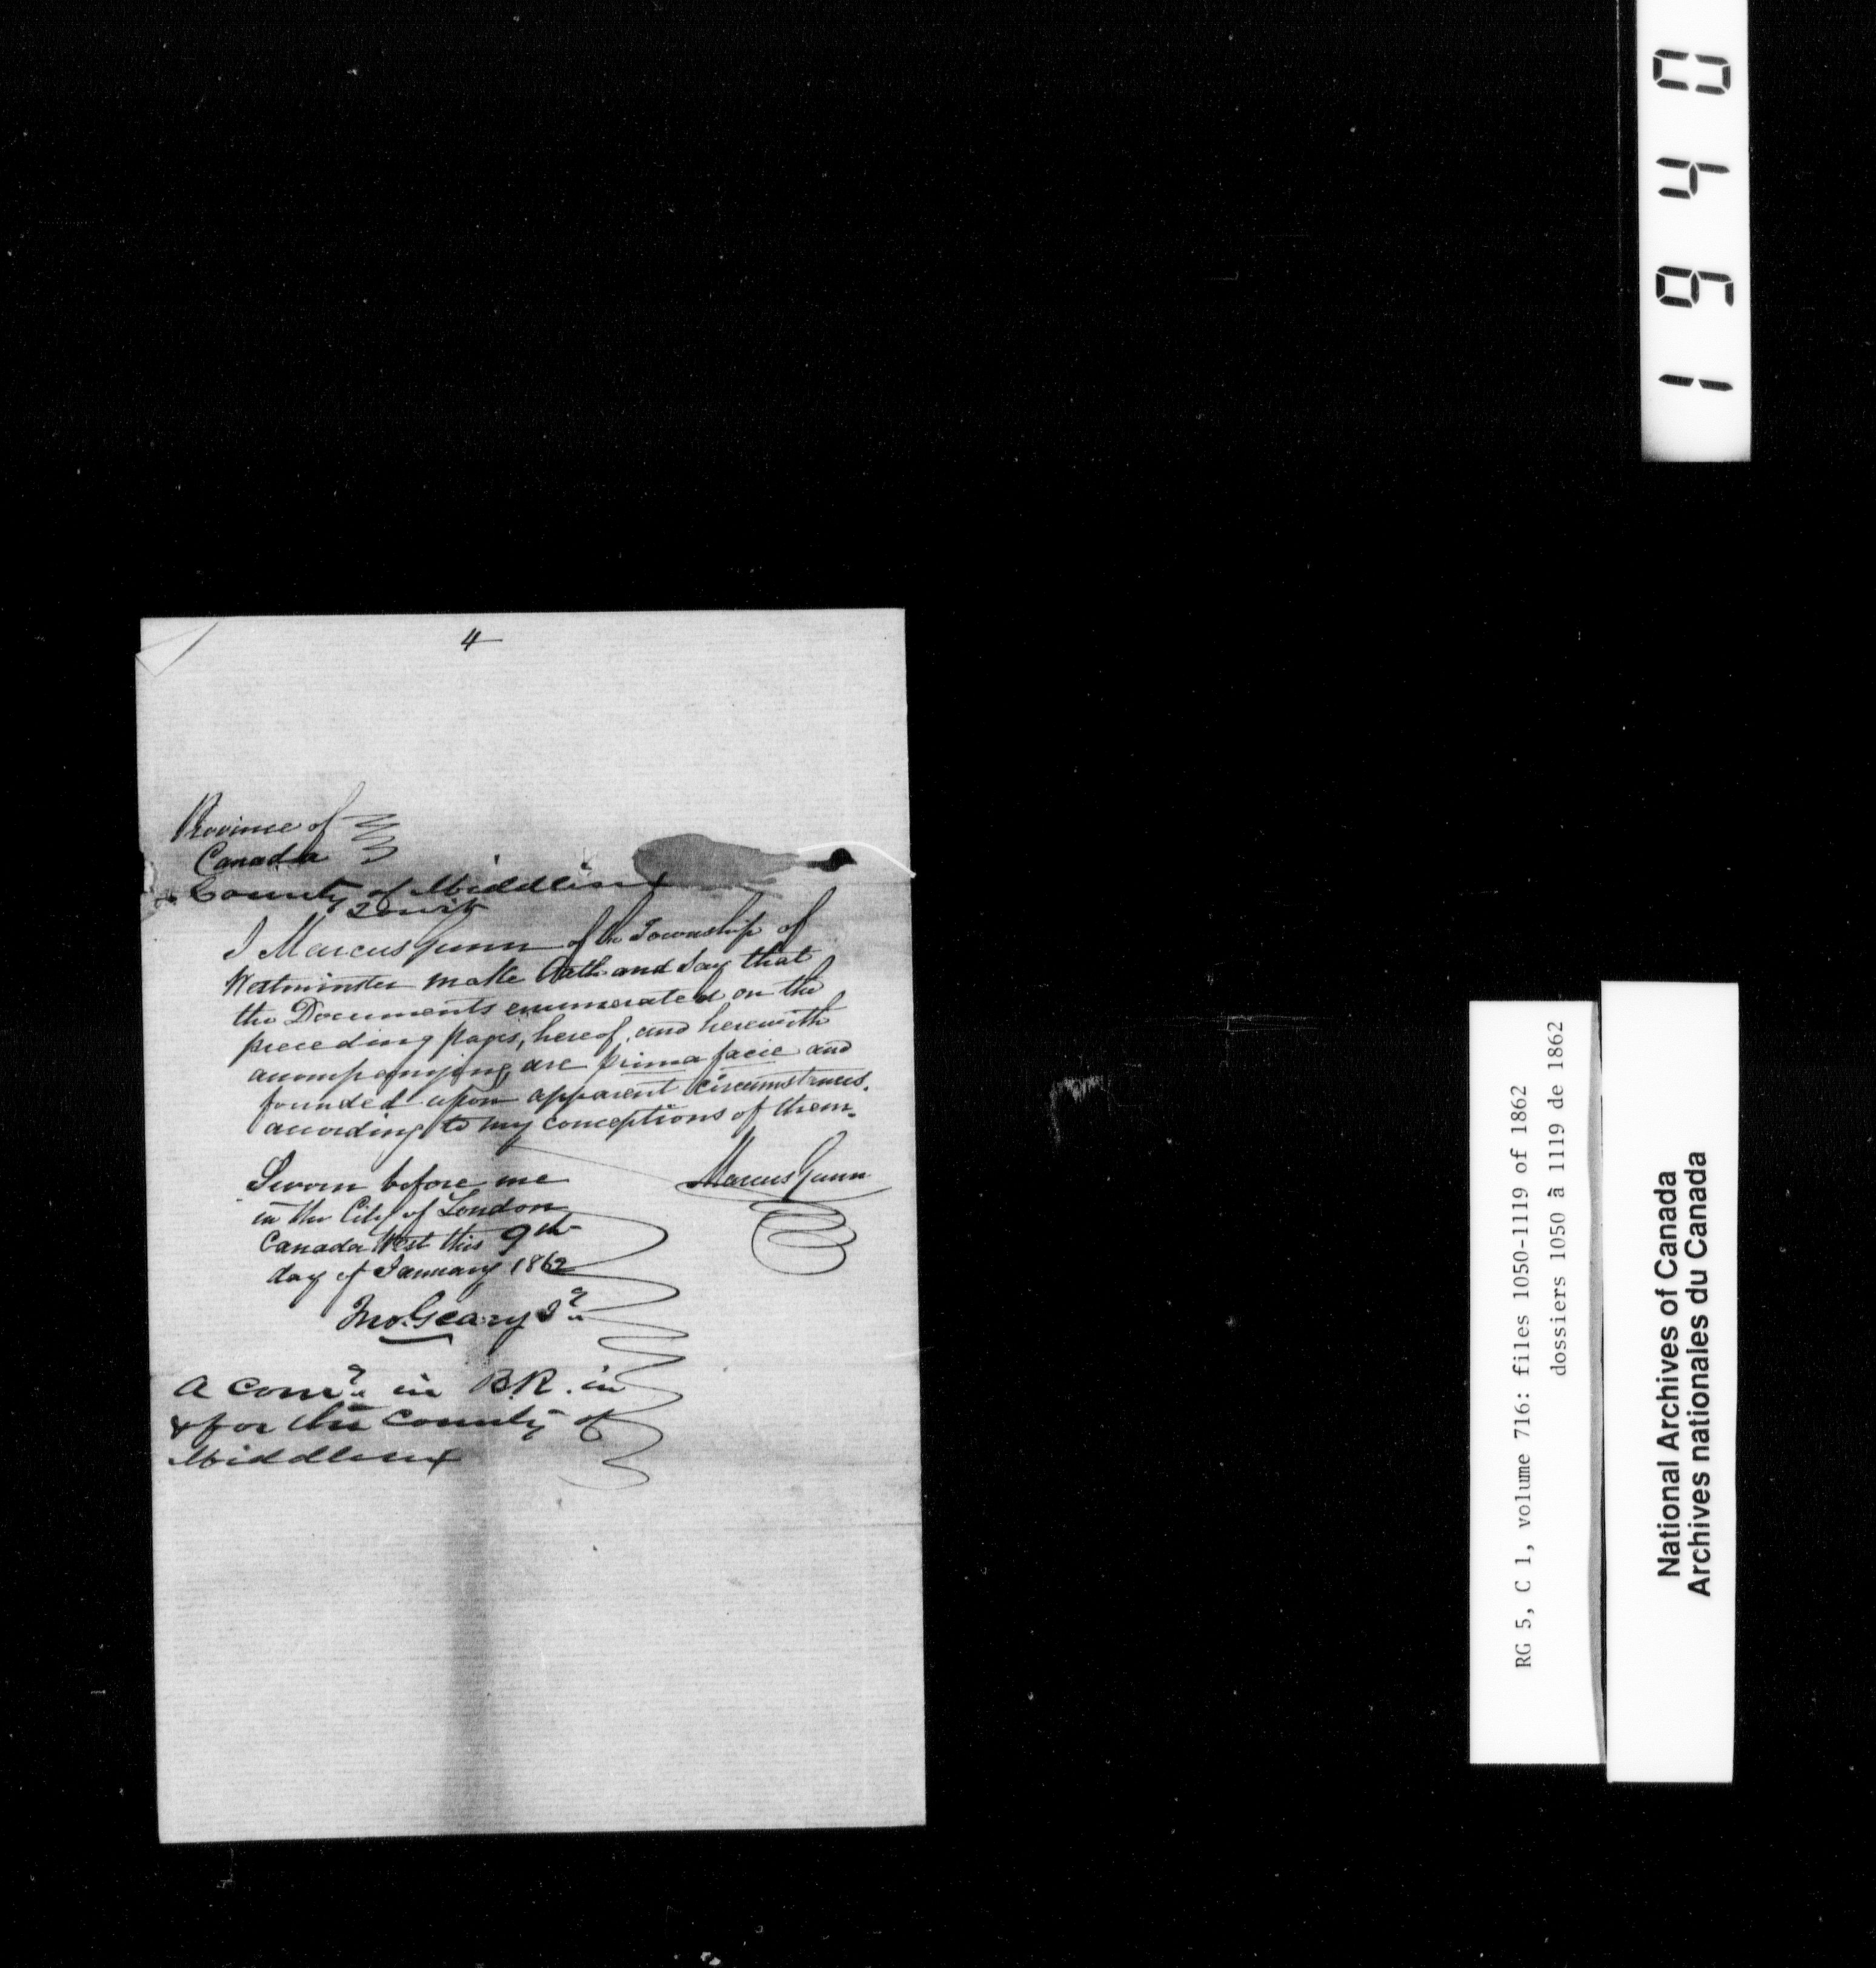 4
Province of
Canada
County of Middlesex
To wit
I Marcus Gunn of the Township of
Westminster make Oath and say that
the Documents enumerated on the
preceding pages, hereof, and herewith
accompanying, are prima facie and
founded upon apparent circumstances,
according to my conceptions of them.
Marcus Gunn
Sworn before me
in the City of London
Canada West this 9th
day of January 1862
Jno. Geary Jr
A Comr in B.R. in
& for the County of
Middlesex
1940
RG 5, C 1, volume 716: files 1050-1119 of 1862
dossiers 1050 à 1119 de 1862
National Archives of Canada
Archives nationales du Canada